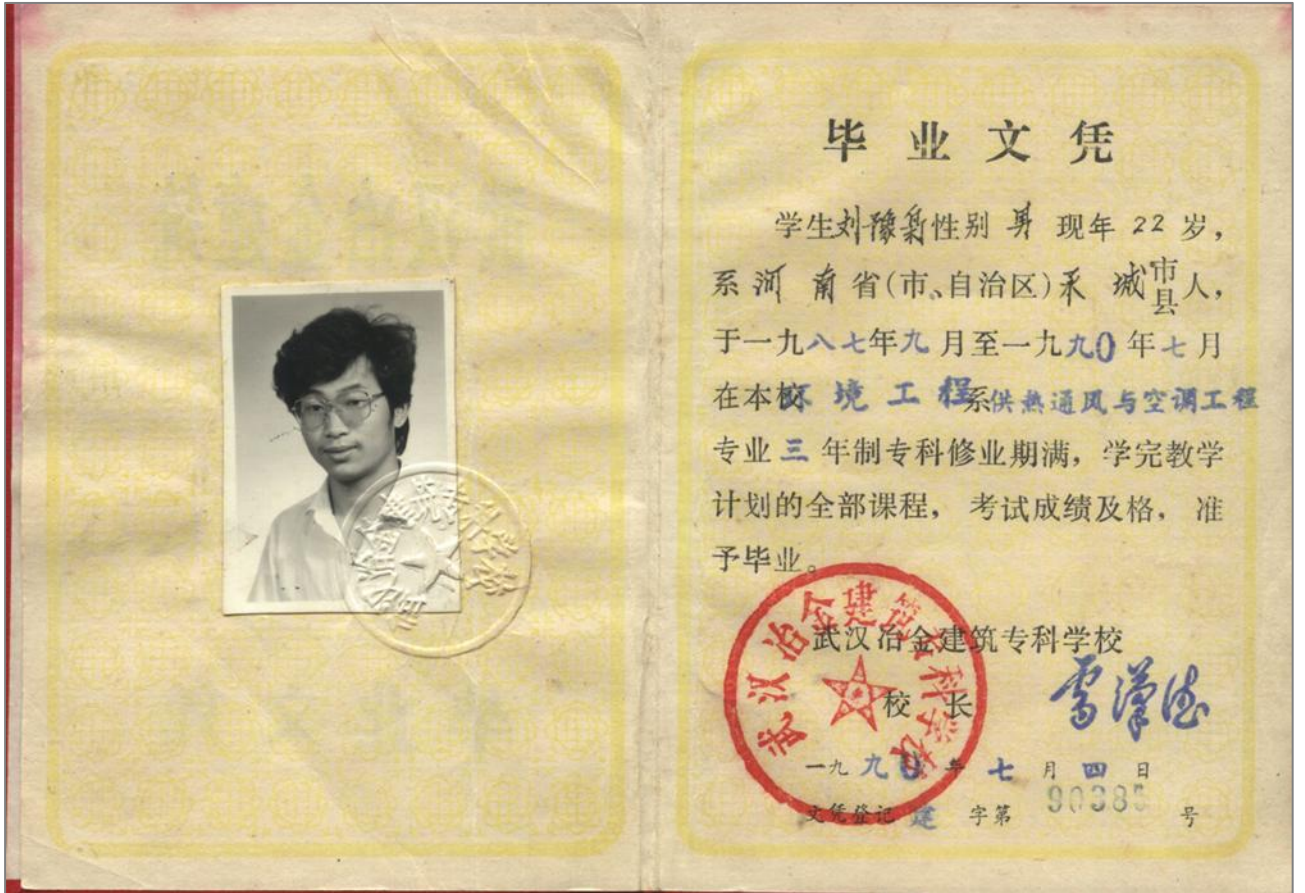 毕业文凭
学生刘豫 性别 男 现年 22 岁,
系河南省(市、自治区)永城市县人,
于一九八七年九月至一九九0年七月
在本校环境工程系供热通风与空调工程
专业三年制专科修业期满,学完教学
计划的全部课程,考试成绩及格,准
予毕业。
武汉冶金建筑专科学校
武汉冶金建筑专科学校
校长
雷 德
一九九0年七月四日
文凭登记建字第90385号